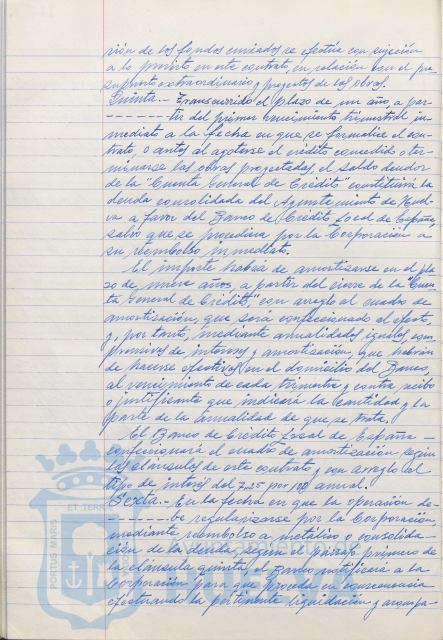 sión de los fondos enviados se efectúa con sujeción
a lo previsto en este contrato, en relación con el pre-
supuesto extraordinario y proyectos de las obras.
Quinta.- Transcurrido el plazo de un año, a par-
-------- tir del primer vencimiento trimestral in-
mediato a la fecha en que se formalice el con-
trato, o antes al agotarse el crédito concedido o ter-
minarse las obras proyectadas, el saldo deudor
de la "Cuenta General de Crédito" constituirá la
deuda consolidada del Ayuntamiento de Huel-
va a favor del Banco de Crédito Local de España,
salvo que se procediera por la Corporación a
su reembolso inmediato.
El importe habrá de amortizarse en el pla-
zo de nueve años, a partir del cierre de la "Cuen-
ta General de Crédito", con arreglo al cuadro de
amortización, que será confeccionado al efecto,
y, por tanto, mediante anualidades iguales com-
prensivas de intereses y amortización, que habrán
de hacerse efectivas en el domicilio del Banco,
al vencimiento de cada trimestre y contra recibo
o justificante que indicará la cantidad y la
parte de la anualidad de que se trata.
El Banco de Crédito Local de España -
confeccionará el cuadro de amortización según
las cláusulas de este contrato y con arreglo al
tipo de interés del 7,25 por 100 anual.
Sexta.- En la fecha en que la operación de-
-------- be regularizarse por la Corporación
mediante reembolso a metálico o consolida-
ción de la deuda, según el párrafo primero de
la cláusula quinta, el Banco notificará a la
Corporación para que proceda en consecuencia
efectuando la pertinente liquidación y acompa-
PORTUS MARIS
ET TERRE